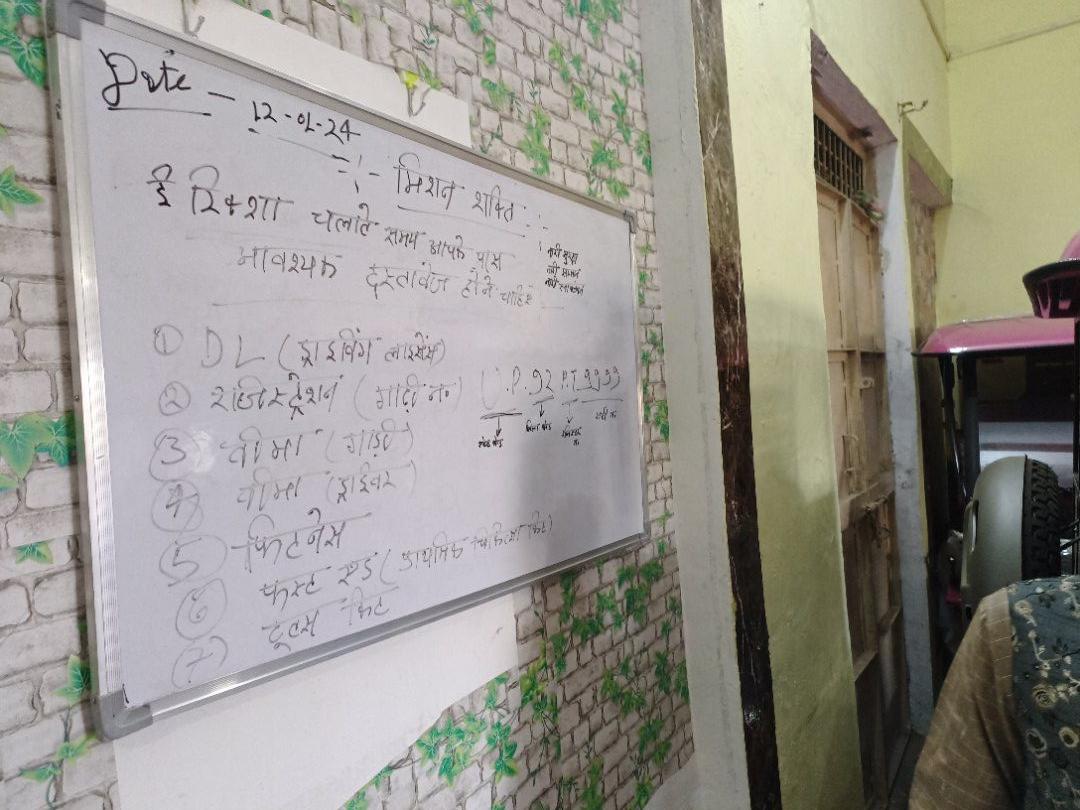 Date - 12-01-24
-:- मिशन शक्ति -:-
ई रिक्शा चलाते समय आपके पास
आवश्यक दस्तावेज होने चाहिए
नारी सुरक्षा
नारी सम्मान
नारी स्वावलंबन
① DL (ड्राइविंग लाइसेंस)
② रजिस्ट्रेशन (गाड़ी न०) U.P. 92 P.T 9999
③ वीमा (गाड़ी)
④ वीमा (ड्राईवर)
⑤ फिटनेस
⑥ फस्ट एड (प्राथमिक चिकित्सा किट)
⑦ टूल्स किट